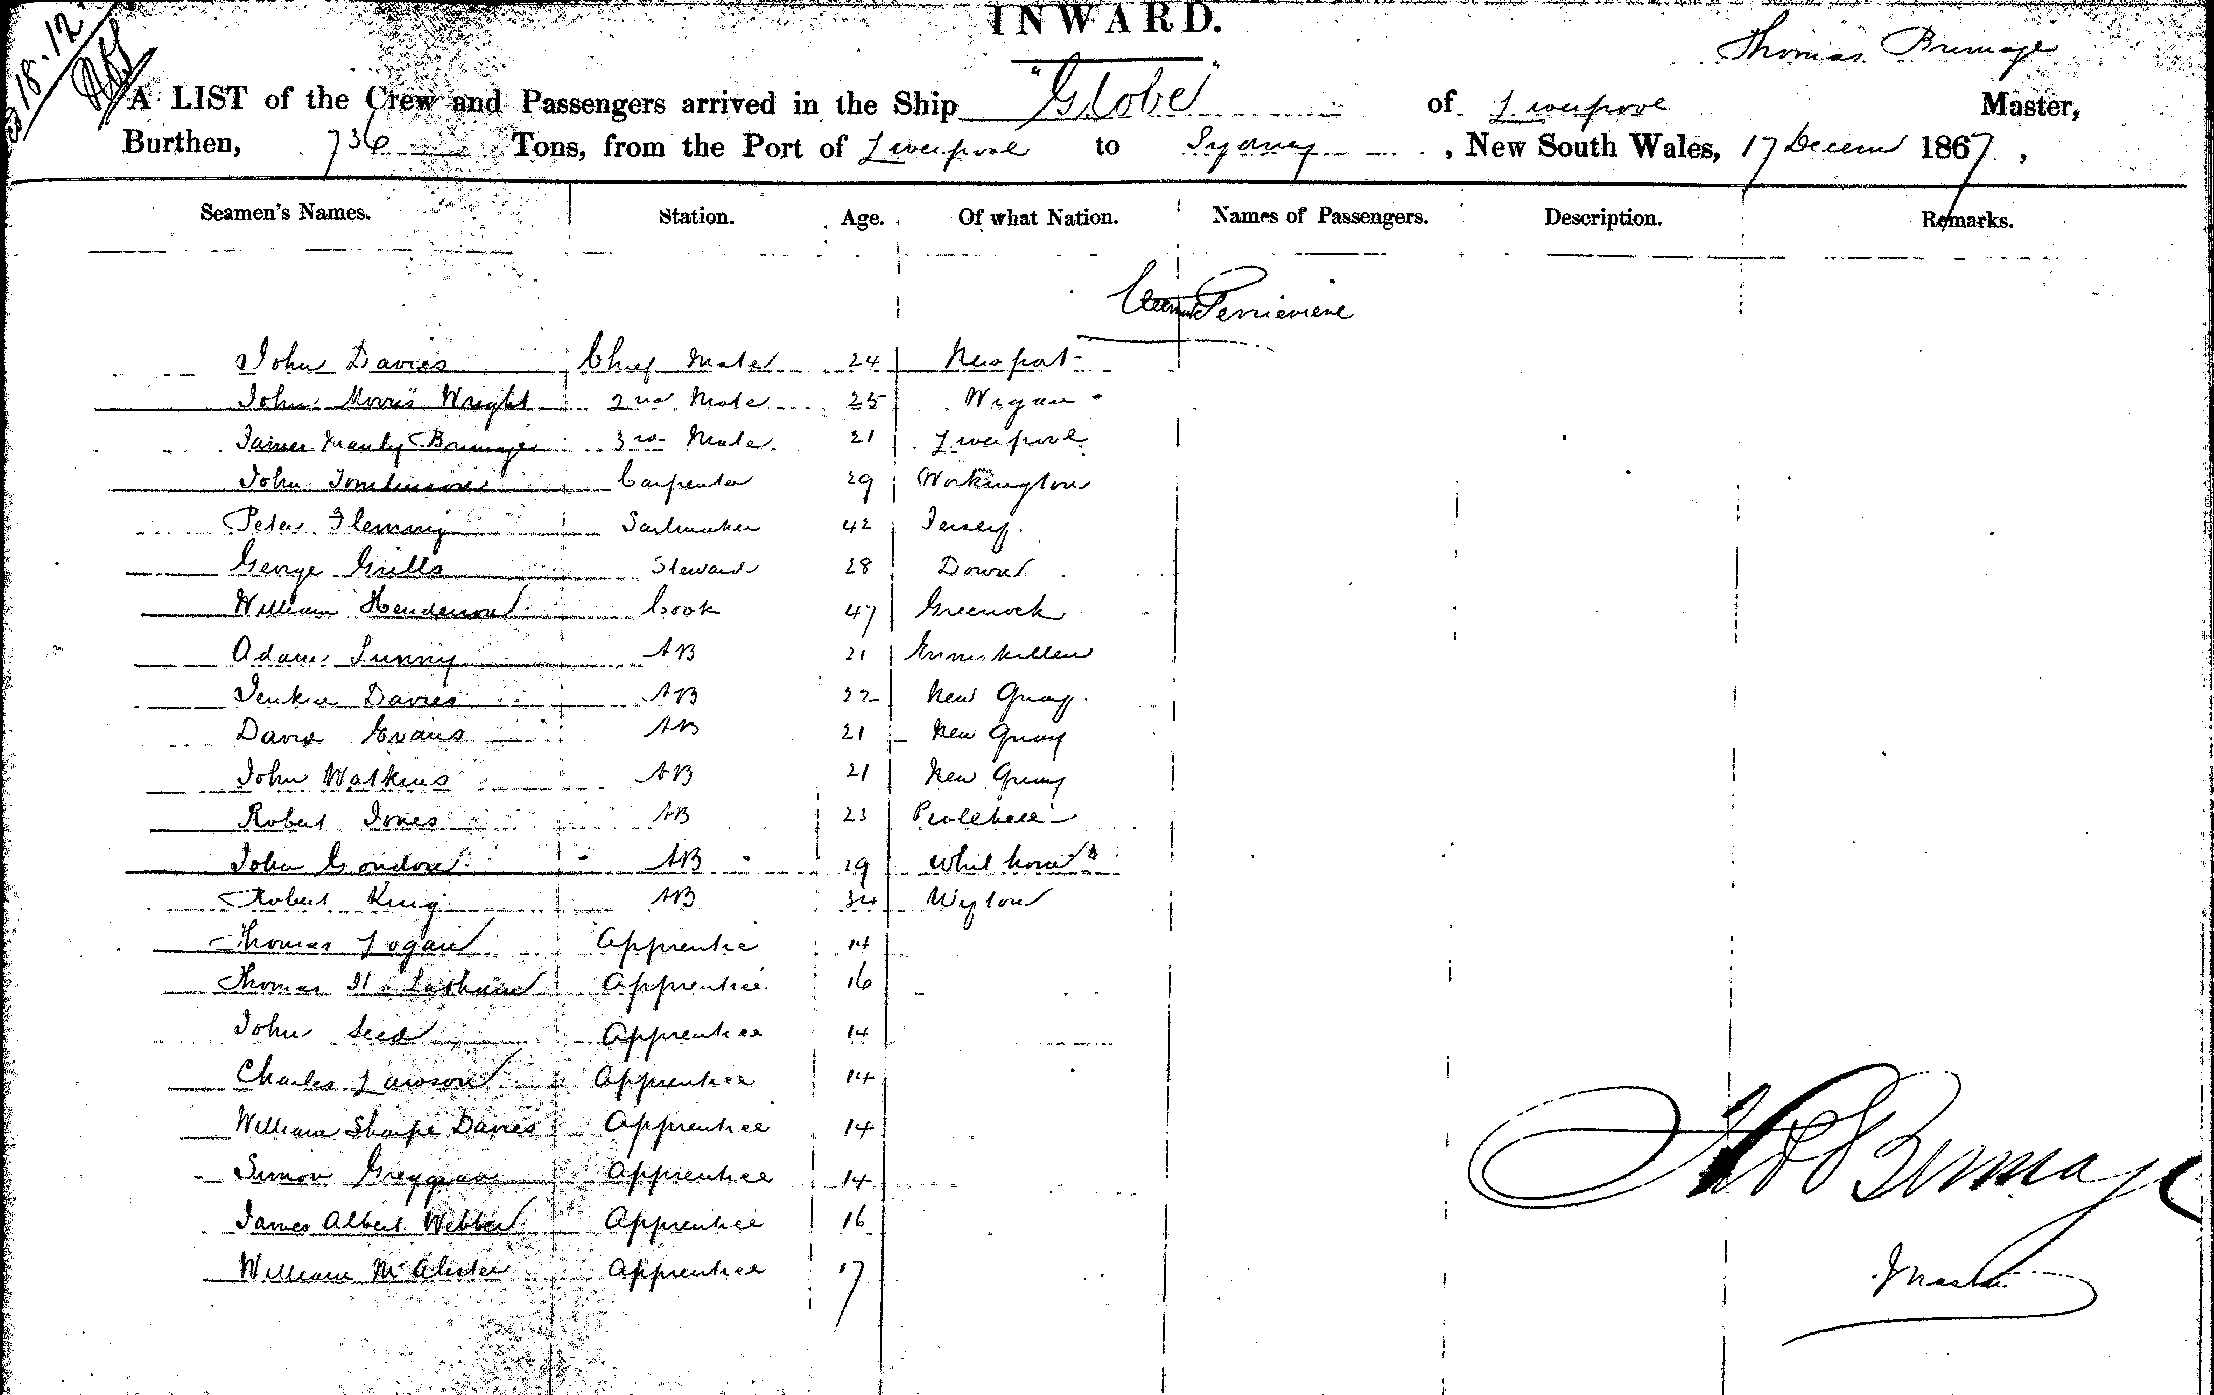 18.12
INWARD.
Thomas Brumage
A LIST of the Crew and Passengers arrived in the Ship "Globe" of Liverpool Master,
Burthen, 736 Tons, from the Port of Liverpool to Sydney, New South Wales, 17 Decem 1867,
Seamen's Names. Station. Age. Of what Nation. Names of Passengers. Description. Remarks.
John Davies Chief Mate 24 Newport
John Morris Wright 2nd Mate 25 Wigan
James Manly Brumage 3rd Mate 21 Liverpool
John Tomlinson Carpenter 29 Workington
Peter Flemmig Sailmaker 42 Jersey.
George Grills Steward 28
William Henderson Cook 47 Greenock
Adam Lunny AB 21 Enniskillen
Jenkin Davies AB 22 New Quay.
David Evans AB 21 New Quay
John Watkins AB 21 New Quay
Robert Jones AB 23
John Condon AB 19
Robert King AB 34 Wigton
Thomas Logan Apprentice 14
Thomas Apprentice 16
John Seed Apprentice 14
Charles Lawson Apprentice 14
William Sharpe Davies Apprentice 14
Simon Apprentice 14
James Albert Webber Apprentice 16
William McAlister Apprentice 17
Thos Brumage
Master